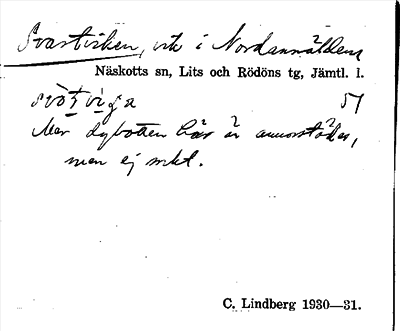 Svartviken, vik i Nordannälden
Näskotts sn, Lits och Rödöns tg, Jämtl. l.
51
Mer dybotten här är annorstädes,
men ej mkt.
C. Lindberg 1930—31.